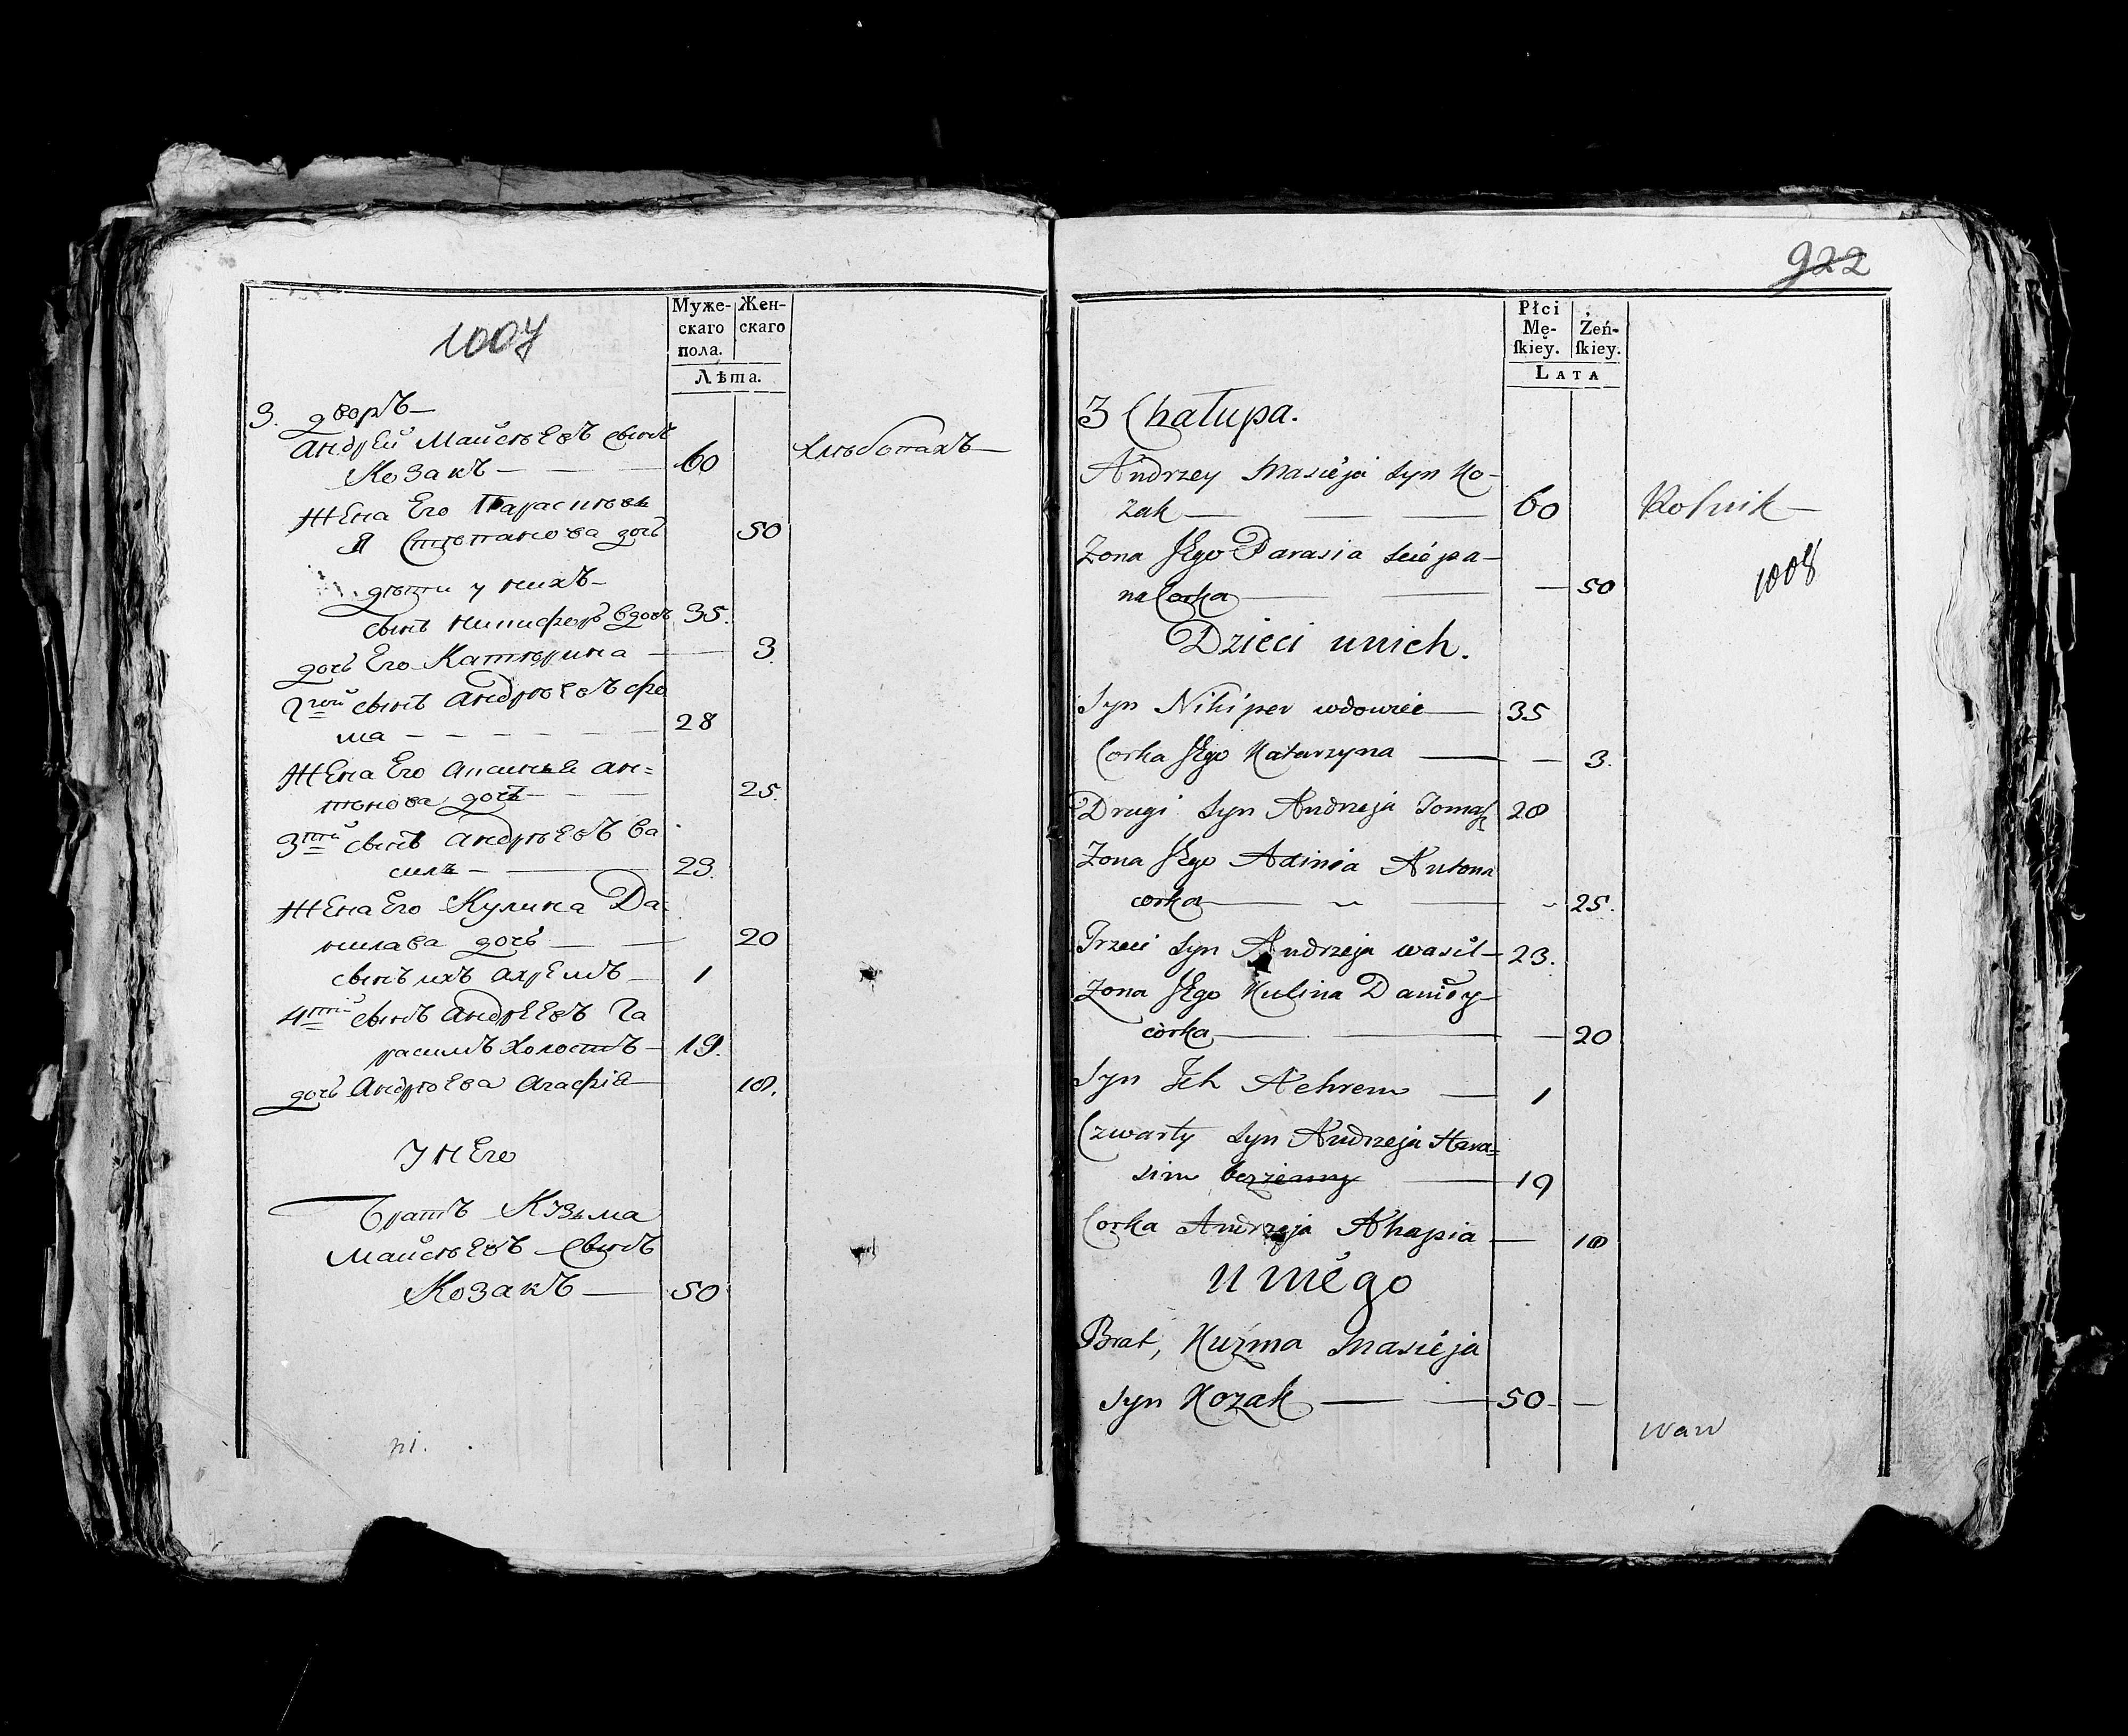 1007
Муже-
скаго
пола.
Жен-
скаго
Лѣта.
3. дворъ
Андрей Майсѣевъ сынъ
Козакъ 60
Хлѣбопахъ
Жена Его Параскѣвь
я Стѣпанова дочь 50
дѣти у нихъ
сынъ Никифоръ вдовъ 35.
дочь Его Катѣрина 3.
2гой сынъ Андрѣевъ Фо
ма 28
Жена Его Аксинья Ан=
тонова дочь 25.
3тій сынъ Андрѣевъ Ва
силь 23.
Жена Его Кулина Да-
нилава дочь 20
сынъ ихъ Ахремъ 1
4тій сынъ Андреевъ Га
расимъ холостъ 19.
дочь Андрѣева Агафія 18.
У Него
Братъ Козьма
Майсѣевъ Сынъ
Козакъ 50
922
Płci
Mę-
ſkiey.
Żeń-
ſkiey.
LATA
3 Chałupa.
Andrzey Masieja syn Ko-
zak 60
Rolnik
Zona JEgo Parasia Sciepa-
na Corka 50
1008
Dzieci unich.
Syn Nikiper wdowiec 35
Corka JEgo Katarzyna 3.
Drugi Syn Andrzeja Tomasz 28
Zona JEgo Axinia Antona
corka 25.
Trzeci Syn Andrzeja wasil 23.
Zona JEgo Kulina Daniły
córka 20
Syn Ich Achrem 1
Czwarty Syn Andrzeja Hara=
sim bezżenny 19
Corka Andrzeja Ahapia 18
U niego
Brat, Kuźma Masieja
Syn Kozak 50